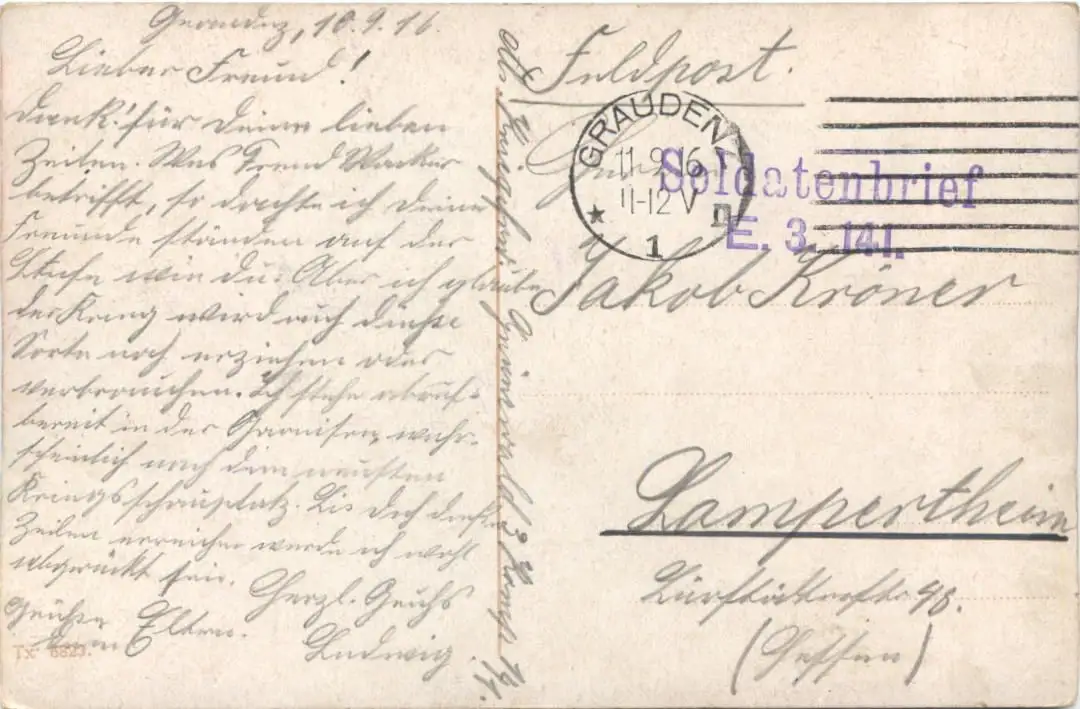 Graudenz, 10.9.16.
Lieber Freund!
Dank! für Deine lieben
Zeilen. Was Freund Wacker
betrifft, so dachte ich Deine
Freunde ständen auf der
Stufe wie du. Aber ich glaube
der Krieg wird auch diese
Sorte noch erziehen oder
verbrauchen. Ich stehe abruf-
bereit in der Garnison, wahr-
scheinlich nach dem neusten
Kriegsschauplatz. Bis Dich diese
Zeilen erreichen werde ich wohl
abgerückt sein.
Herzl. Gruß
Grüße
Eltern.
Ludwig
Tx 6823.
Feldpost.
GRAUDENZ
11.9.16
11-12 V
1
Soldatenbrief
E. 3. 141.
Jakob Kröner
Lampertheim
98.
(Hessen)